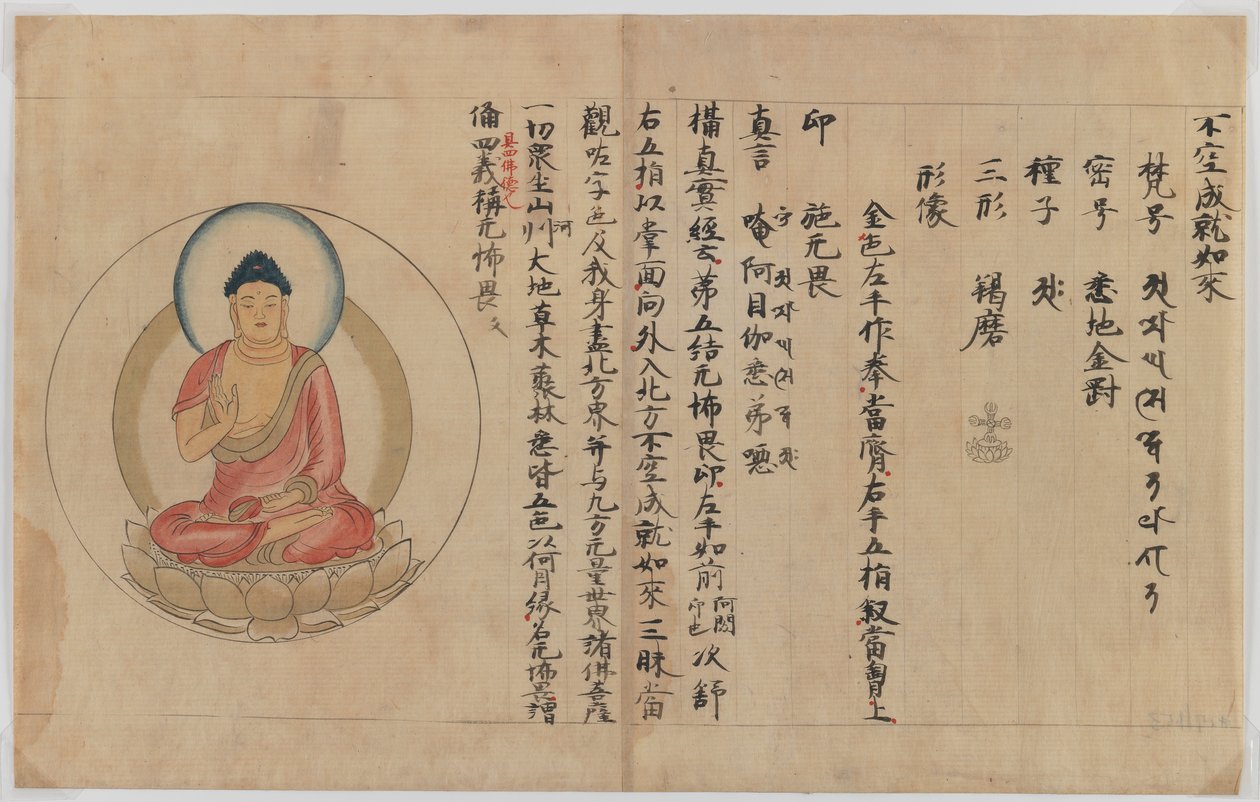 不空成就如來
梵号
密号　悉地金剛
種子
三形　羯磨
形像
金色左手作拳當臍右手五指舒當胷上
印　施无畏
真言　唵阿目伽悉弟噁
攝真實經云第五結无怖畏印左手如前阿閦印也次舒
右五指以掌面向外入北方不空成就如來三昧當
觀字色及我身盡北方界并与九方无量世界諸佛菩薩
一切眾生山河大地草木藂林悉皆五色以何因緣名无怖畏謂
具四佛德
四義稱无怖畏